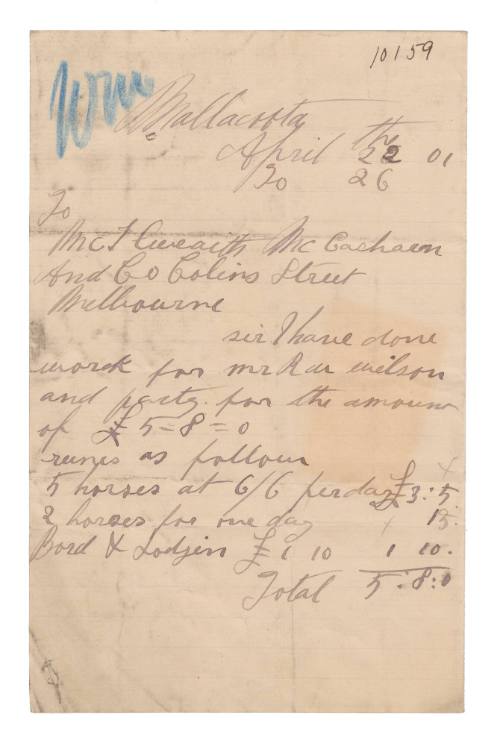 10159
Wm
Mallacoota
April the 22 01
To 26
To
McIlweaith McEacharn
And Co Colins Street
Melbourne
sir I have done
worck for mr R w wilson
and party for the amount
of £ 5=8=0
runes as follow
5 horses at 6/6 per day £3:5
2 horses for one day 13.
Bord & Lodjin £ 1 10 1 10.
Total 5:8:0